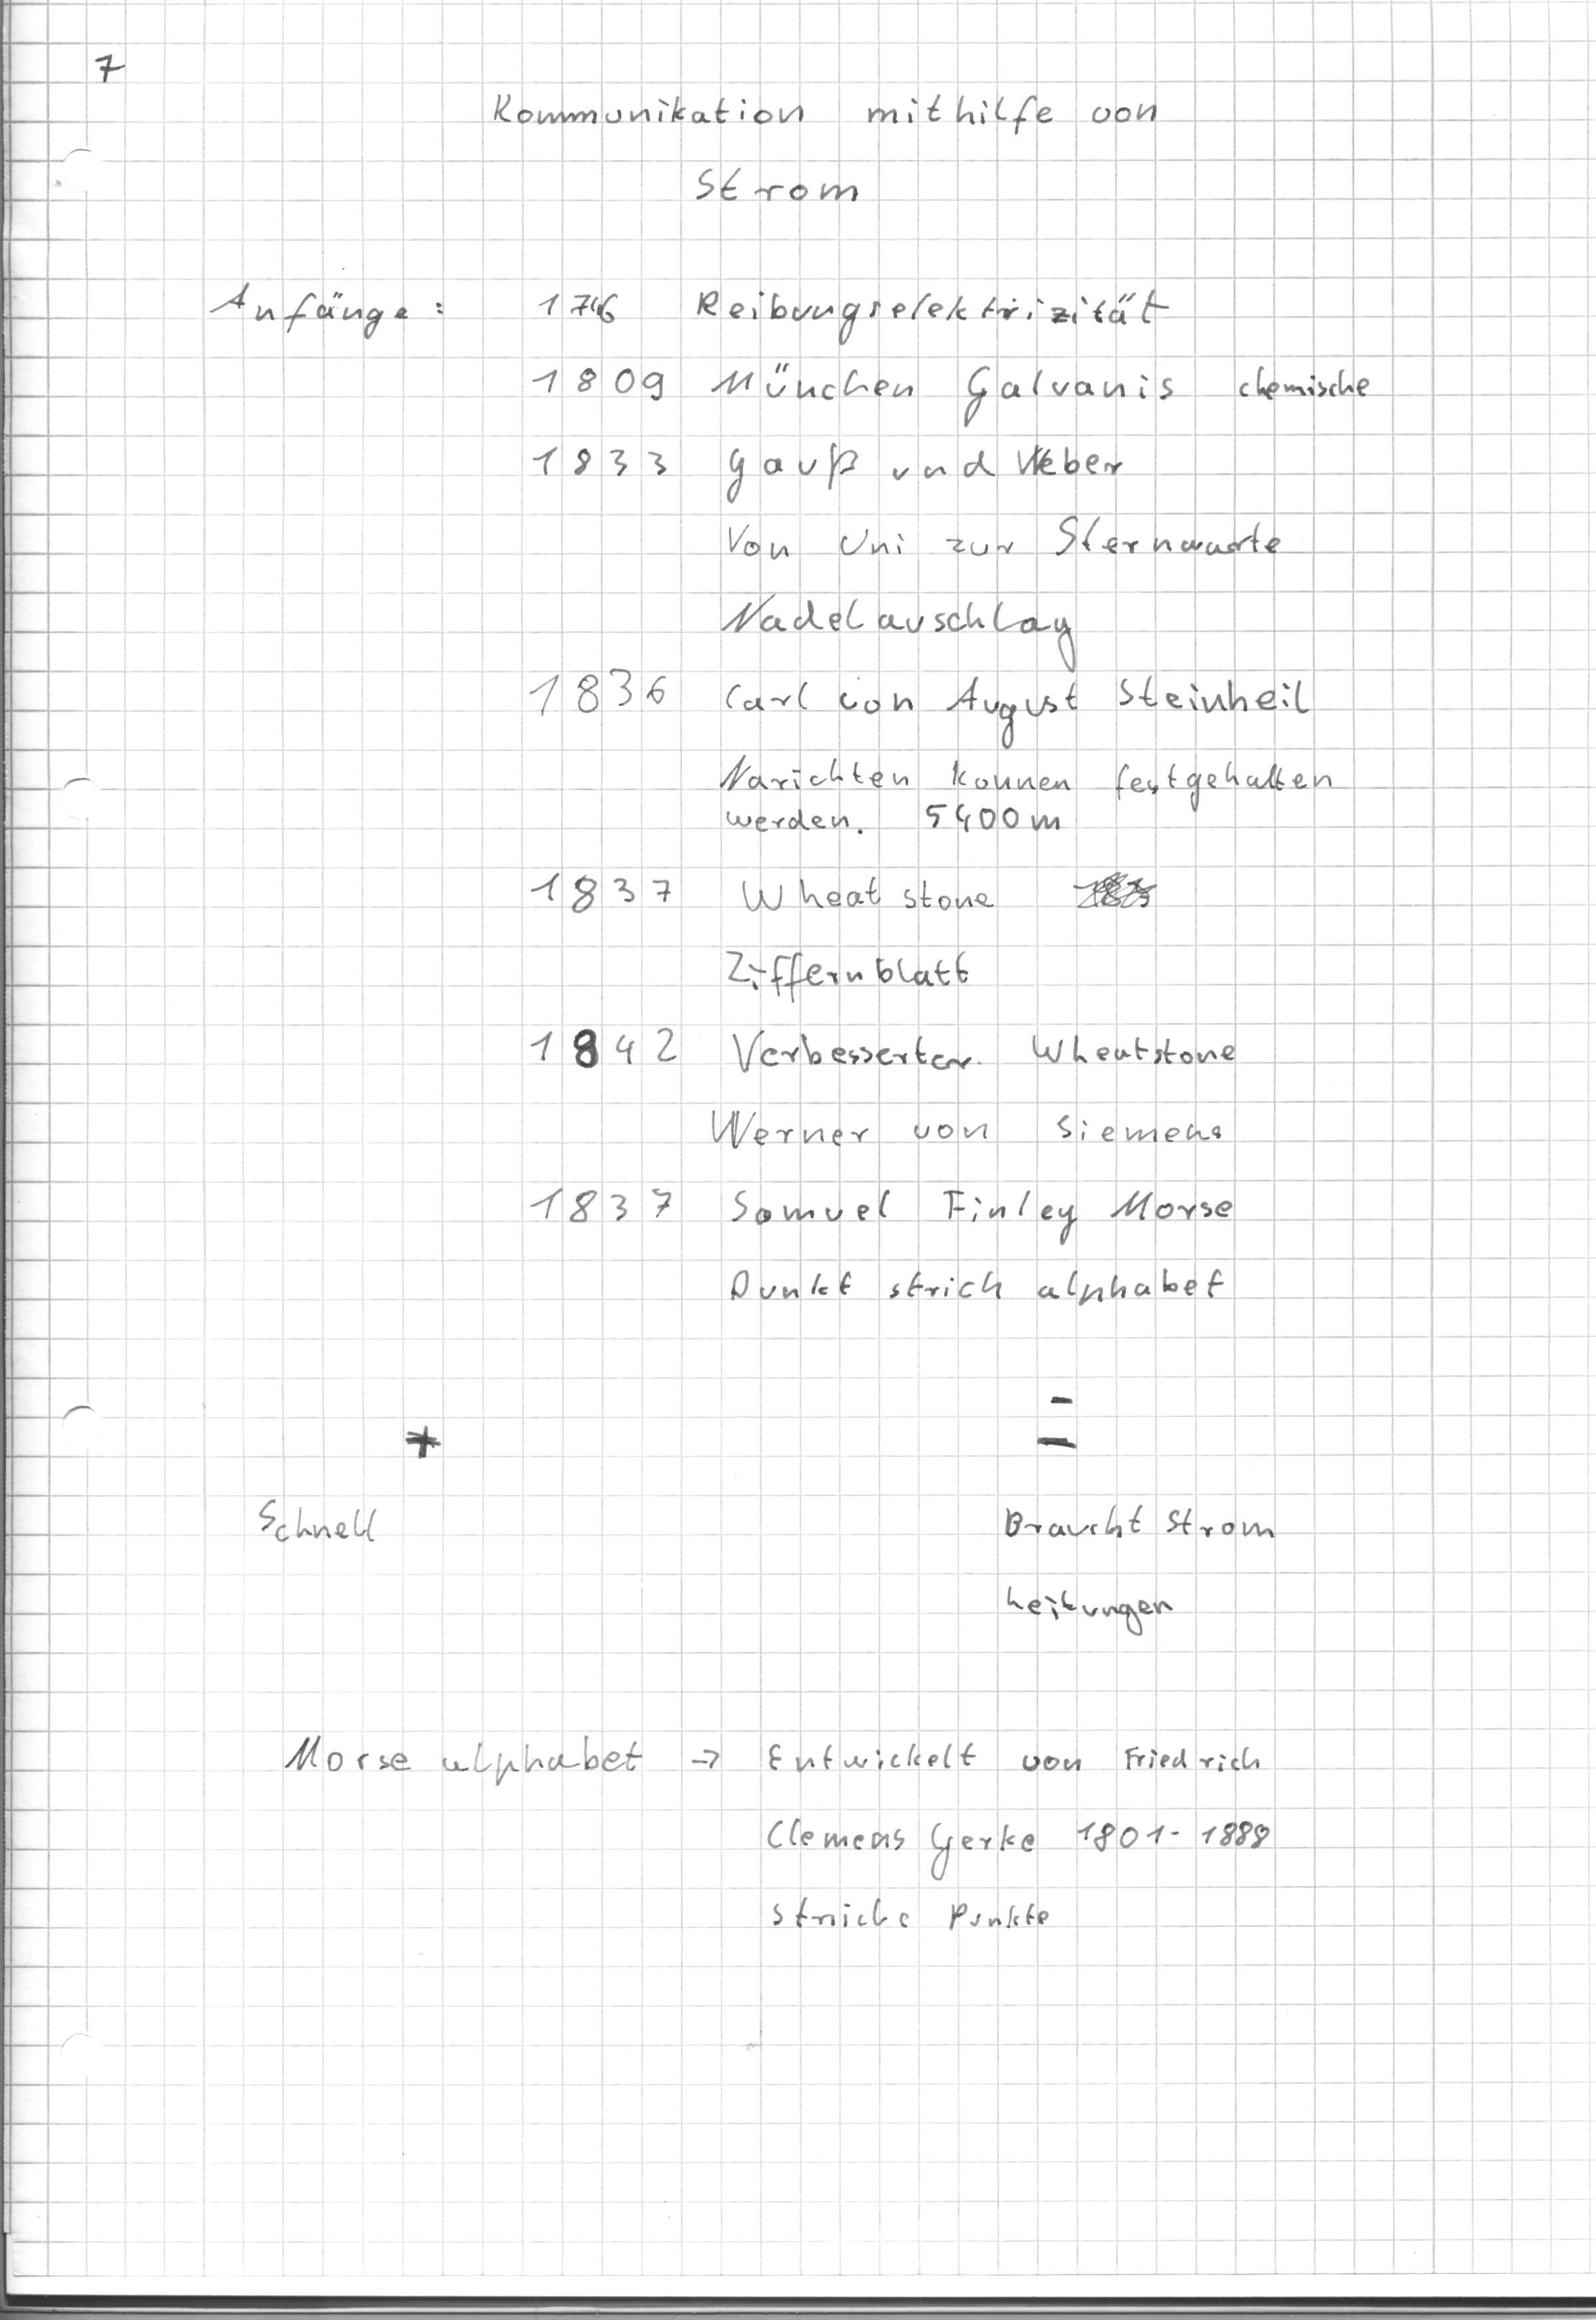 7
Kommunikation mithilfe von
Strom
Anfänge: 1746 Reibungselektrizität
1809 München Galvanis chemische
1833 Gauß und Weber
Von Uni zur Sternwarte
Nadelauschlag
1836 Carl von August Steinheil
Narichten konnen festgehalten
werden. 5400m
1837 Wheatstone
Ziffernblatt
1842 Verbesserter Wheatstone
Werner von Siemens
1837 Samuel Finley Morse
Punkt strich alphabet
+ -
Schnell Braucht Strom
Leitungen
Morse alphabet → Entwickelt von Friedrich
Clemens Gerke 1801-1888
striche Punkte